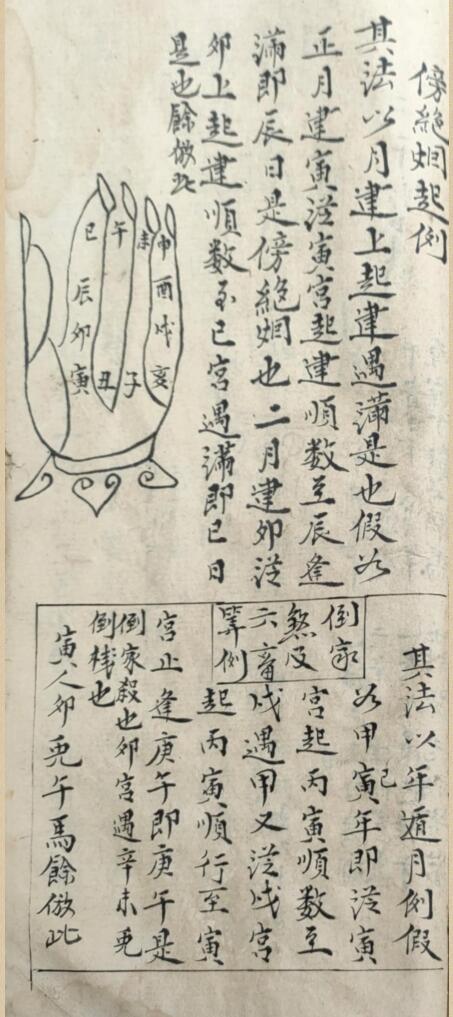 傍絶烟起例
其法以月建上起建遇滿是也假如
正月建寅從寅宮起建順数至辰逢
滿即辰日是傍絶烟也二月建卯從
卯上起建順数至巳宮遇滿即巳日
是也餘倣此
巳
午
未
申
辰
酉
卯
戌
寅
丑
子
亥
其法以年遁月例假
如甲己寅年即從寅
倒家
煞及
六畜
等例
宮起丙寅順数至
戌遇甲又從戌宮
起丙寅順行至寅
宮止逢庚午即庚午是
倒家殺也卯宮遇辛未兎
倒棧也
寅人卯兎午馬餘倣此